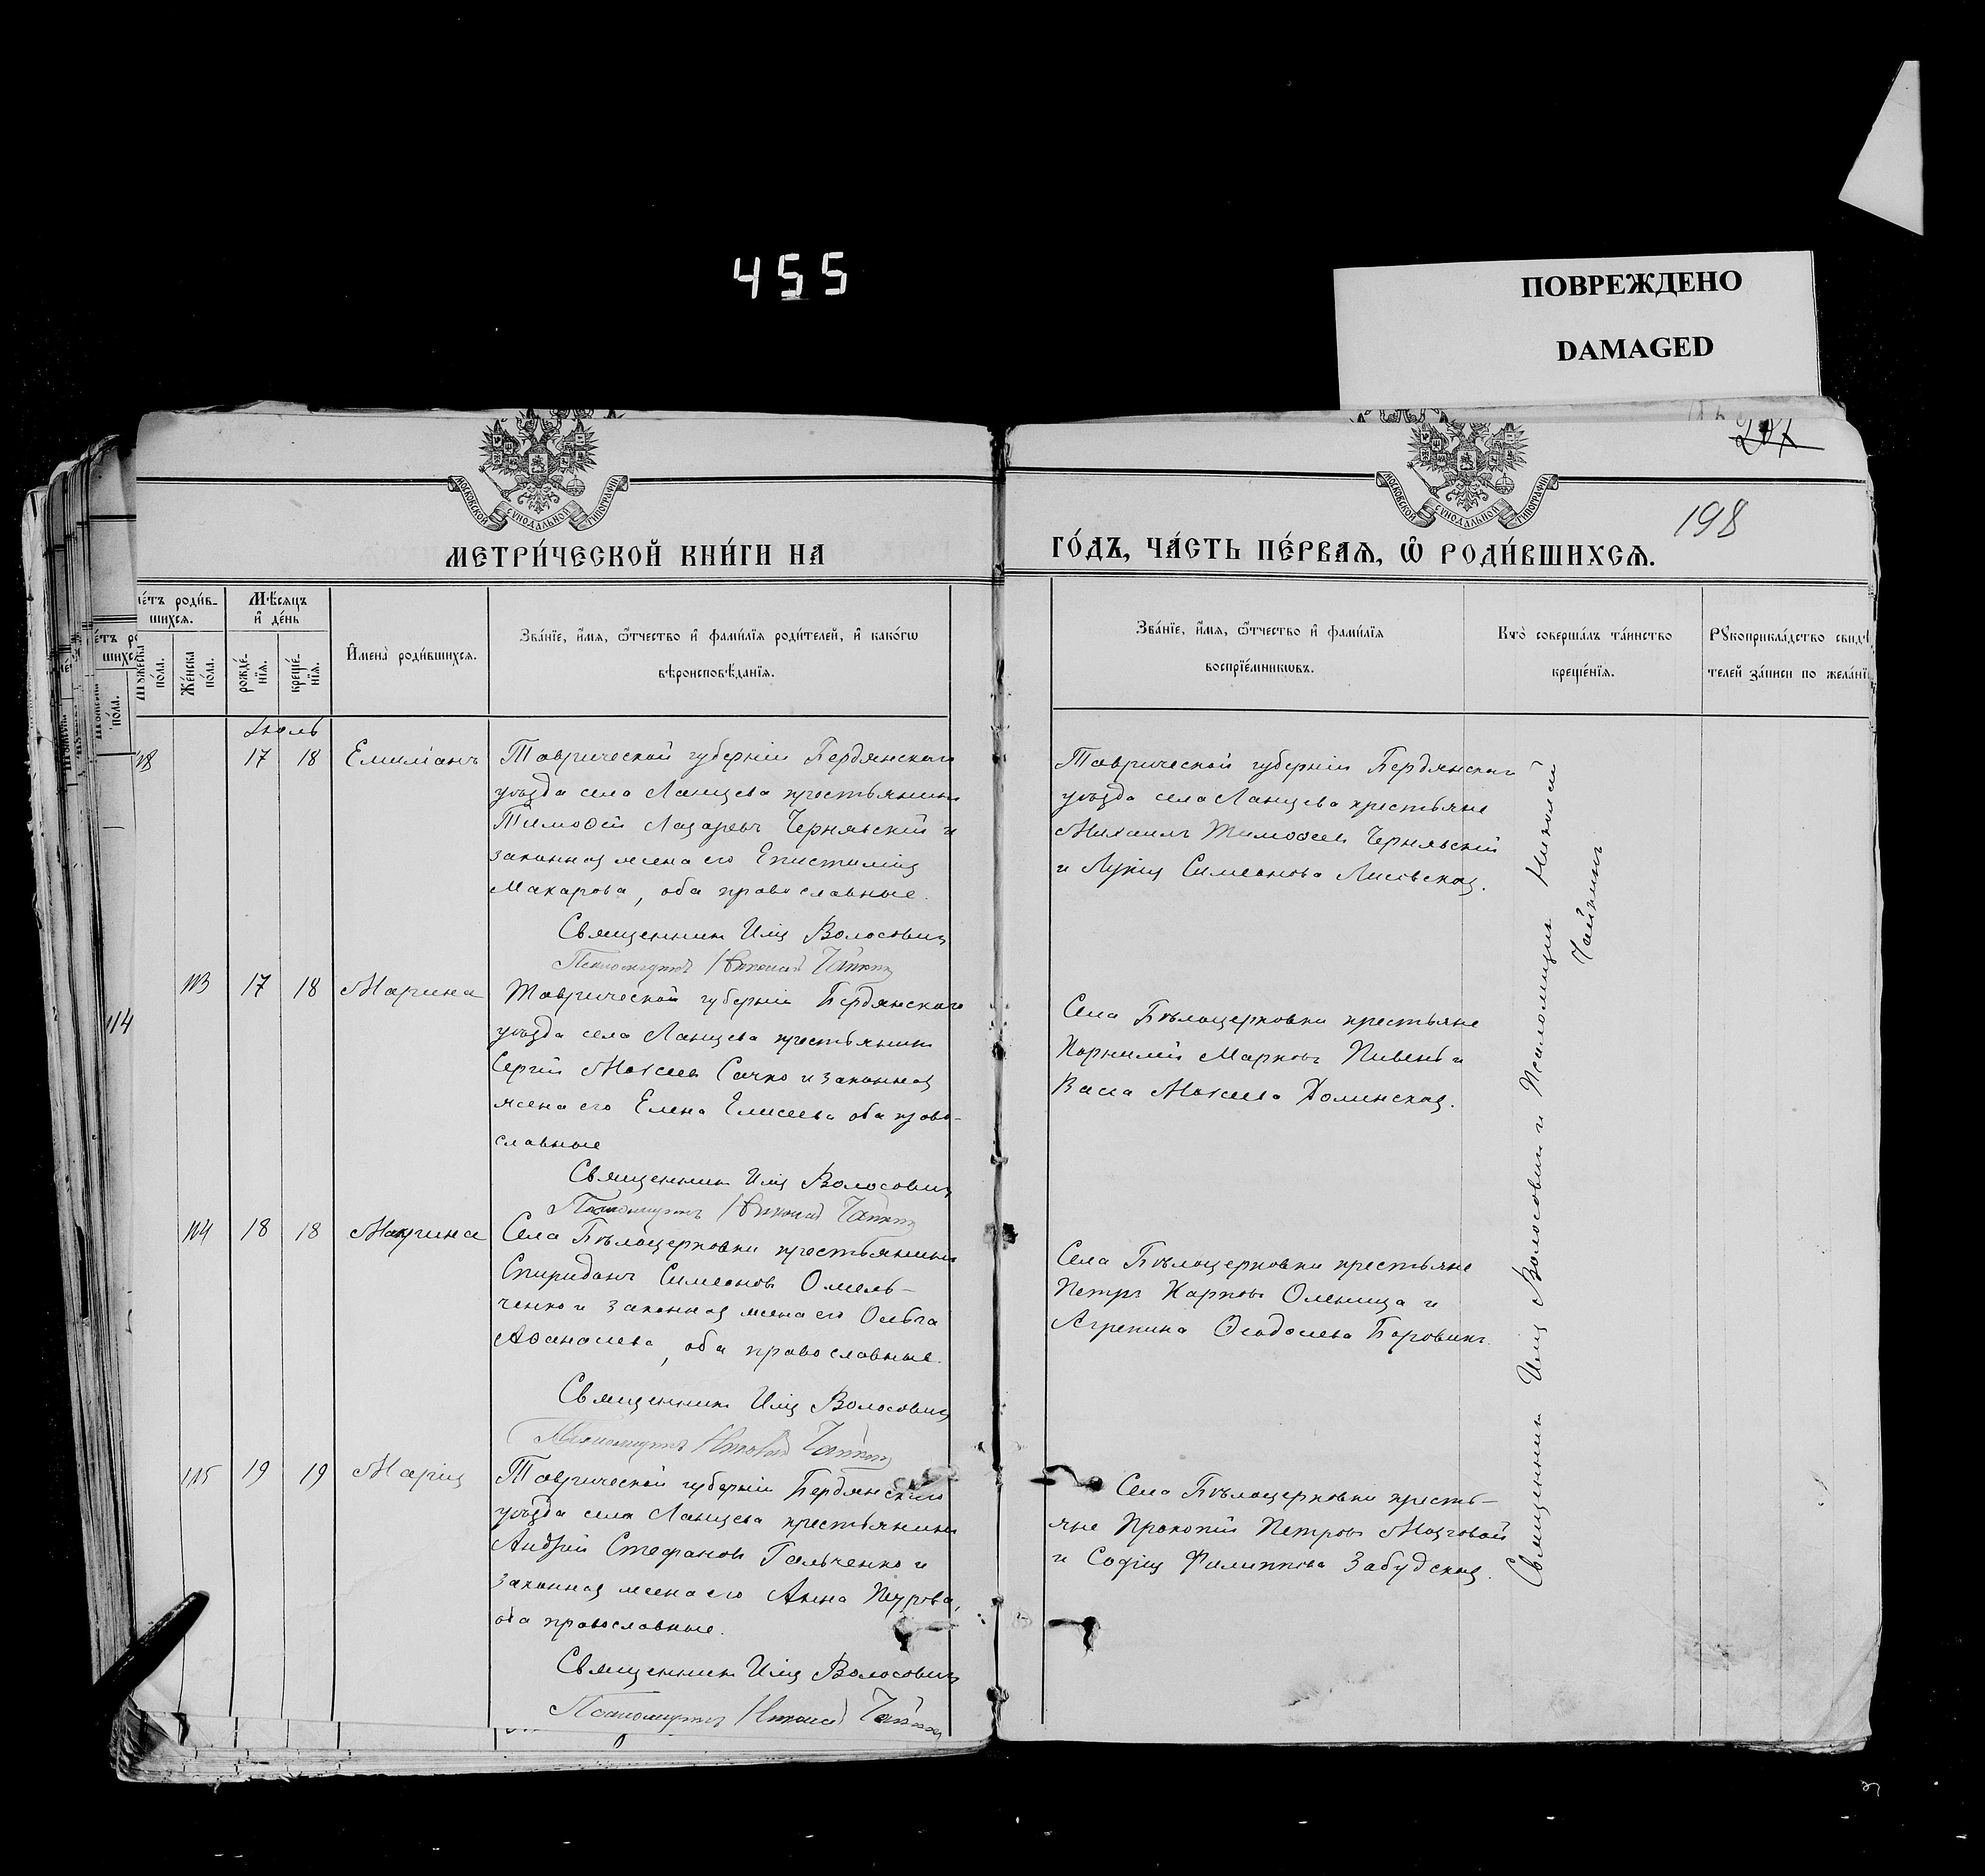 455
ПОВРЕЖДЕНО
DAMAGED
МОСКОВСКОЙ СѴНОДАЛЬНОЙ ТИПОГРАФІИ
МОСКОВСКОЙ СѴНОДАЛЬНОЙ ТИПОГРАФІИ
198
МЕТРИ́ЧЕСКОЙ КНИ́ГИ НА
ГО́ДЪ, ЧА́СТЬ ПЕ́РВАЯ, Ѿ РОДИ́ВШИХСЯ.
роди́в-
шихся.
Мѣ́сяцъ
и҆ де́нь
Же́нска
по́ла.
рожде́-
нія.
креще́-
нія.
И҆мена̀ роди́вшихся.
Зва́ніе, и҆́мя, ѻ҆́тчество и҆ фами́лія роди́телей, и҆ како́гѡ
вѣроисповѣ́данія.
Зва́ніе, и҆́мя, ѻ҆́тчество и҆ фами́лія
воспріе́мникѡвъ.
Кто̀ соверша́лъ та́инство
креще́нія.
Рꙋкоприкла́дство свидѣ́
телей за́писи по жела́ні
Іюль
17 18 Емиліанъ
Таврической губерніи Бердянскаго
уѣзда села Ланцева крестьянинъ
Тимоѳей Лазаревъ Чернявскій и
законная жена его Епистимія
Макарова, оба православные.
Священникъ Илія Волосовичъ
Псаломщикъ Николай Чайкинъ
Таврической губерніи Бердянскаго
уѣзда села Ланцева крестьяне
Михаилъ Тимоѳеевъ Чернявскій
и Лукія Симеонова Лисовская.
113 17 18 Марина
Таврической губерніи Бердянскаго
уѣзда села Ланцева крестьянинъ
Сергій Моѵсеевъ Сачко и законная
жена его Елена Елисеева оба право-
славные
Священникъ Илія Волосовичъ
Псаломщикъ Николай Чайкинъ
Села Бѣлоцерковки крестьяне
Корнилій Марковъ Пивень и
Васса Моѵсеева Долинская.
114
114 18 18 Марина
Села Бѣлоцерковки крестьянинъ
Спиридонъ Симеоновъ Омель-
ченко и законная жена его Ольга
Аѳанасіева, оба православные.
Священникъ Илія Волосовичъ
Псаломщикъ Николай Чайкинъ
Села Бѣлоцерковки крестьяне
Петръ Карповъ Оленица и
Агрепина Ѳеодосіева Боровикъ.
115 19 19 Марія
Таврической губерніи Бердянскаго
уѣзда села Ланцева крестьянинъ
Андрей Стефановъ Гальченко и
законная жена его Анна Петрова,
оба православные.
Священникъ Илія Волосовичъ
Псаломщикъ Николай Чайкинъ
Села Бѣлоцерковки кресть-
яне Прокопій Петровъ Мозговой
и Софія Филиппова Забудская.
Священникъ Илія Волосовичъ и Псаломщикъ Николай
Чайкинъ